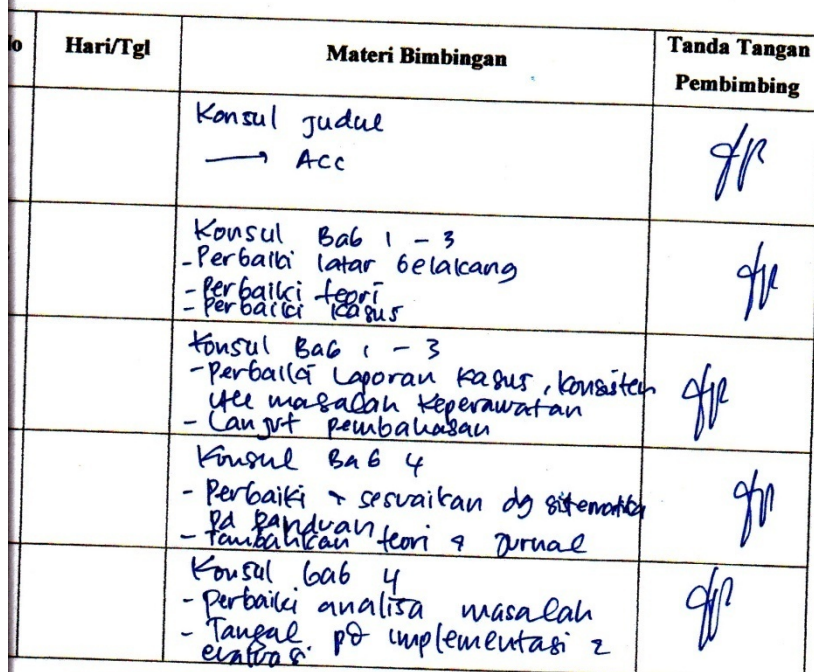 No Hari/Tgl Materi Bimbingan Tanda Tangan Pembimbing
Konsul Judul
→ Acc
Konsul Bab 1 - 3
- Perbaiki latar belakang
- Perbaiki teori
- Perbaiki kasus
Konsul Bab 1 - 3
- Perbaiki Laporan kasus, konsisten
masalah keperawatan
- Lanjut pembahasan
Konsul Bab 4
- Perbaiki + sesuaikan dg sitematika
pd panduan
- Tambahkan teori & Jurnal
Konsul bab 4
- Perbaiki analisa masalah
- Tangal pd implementasi 2
evaluasi